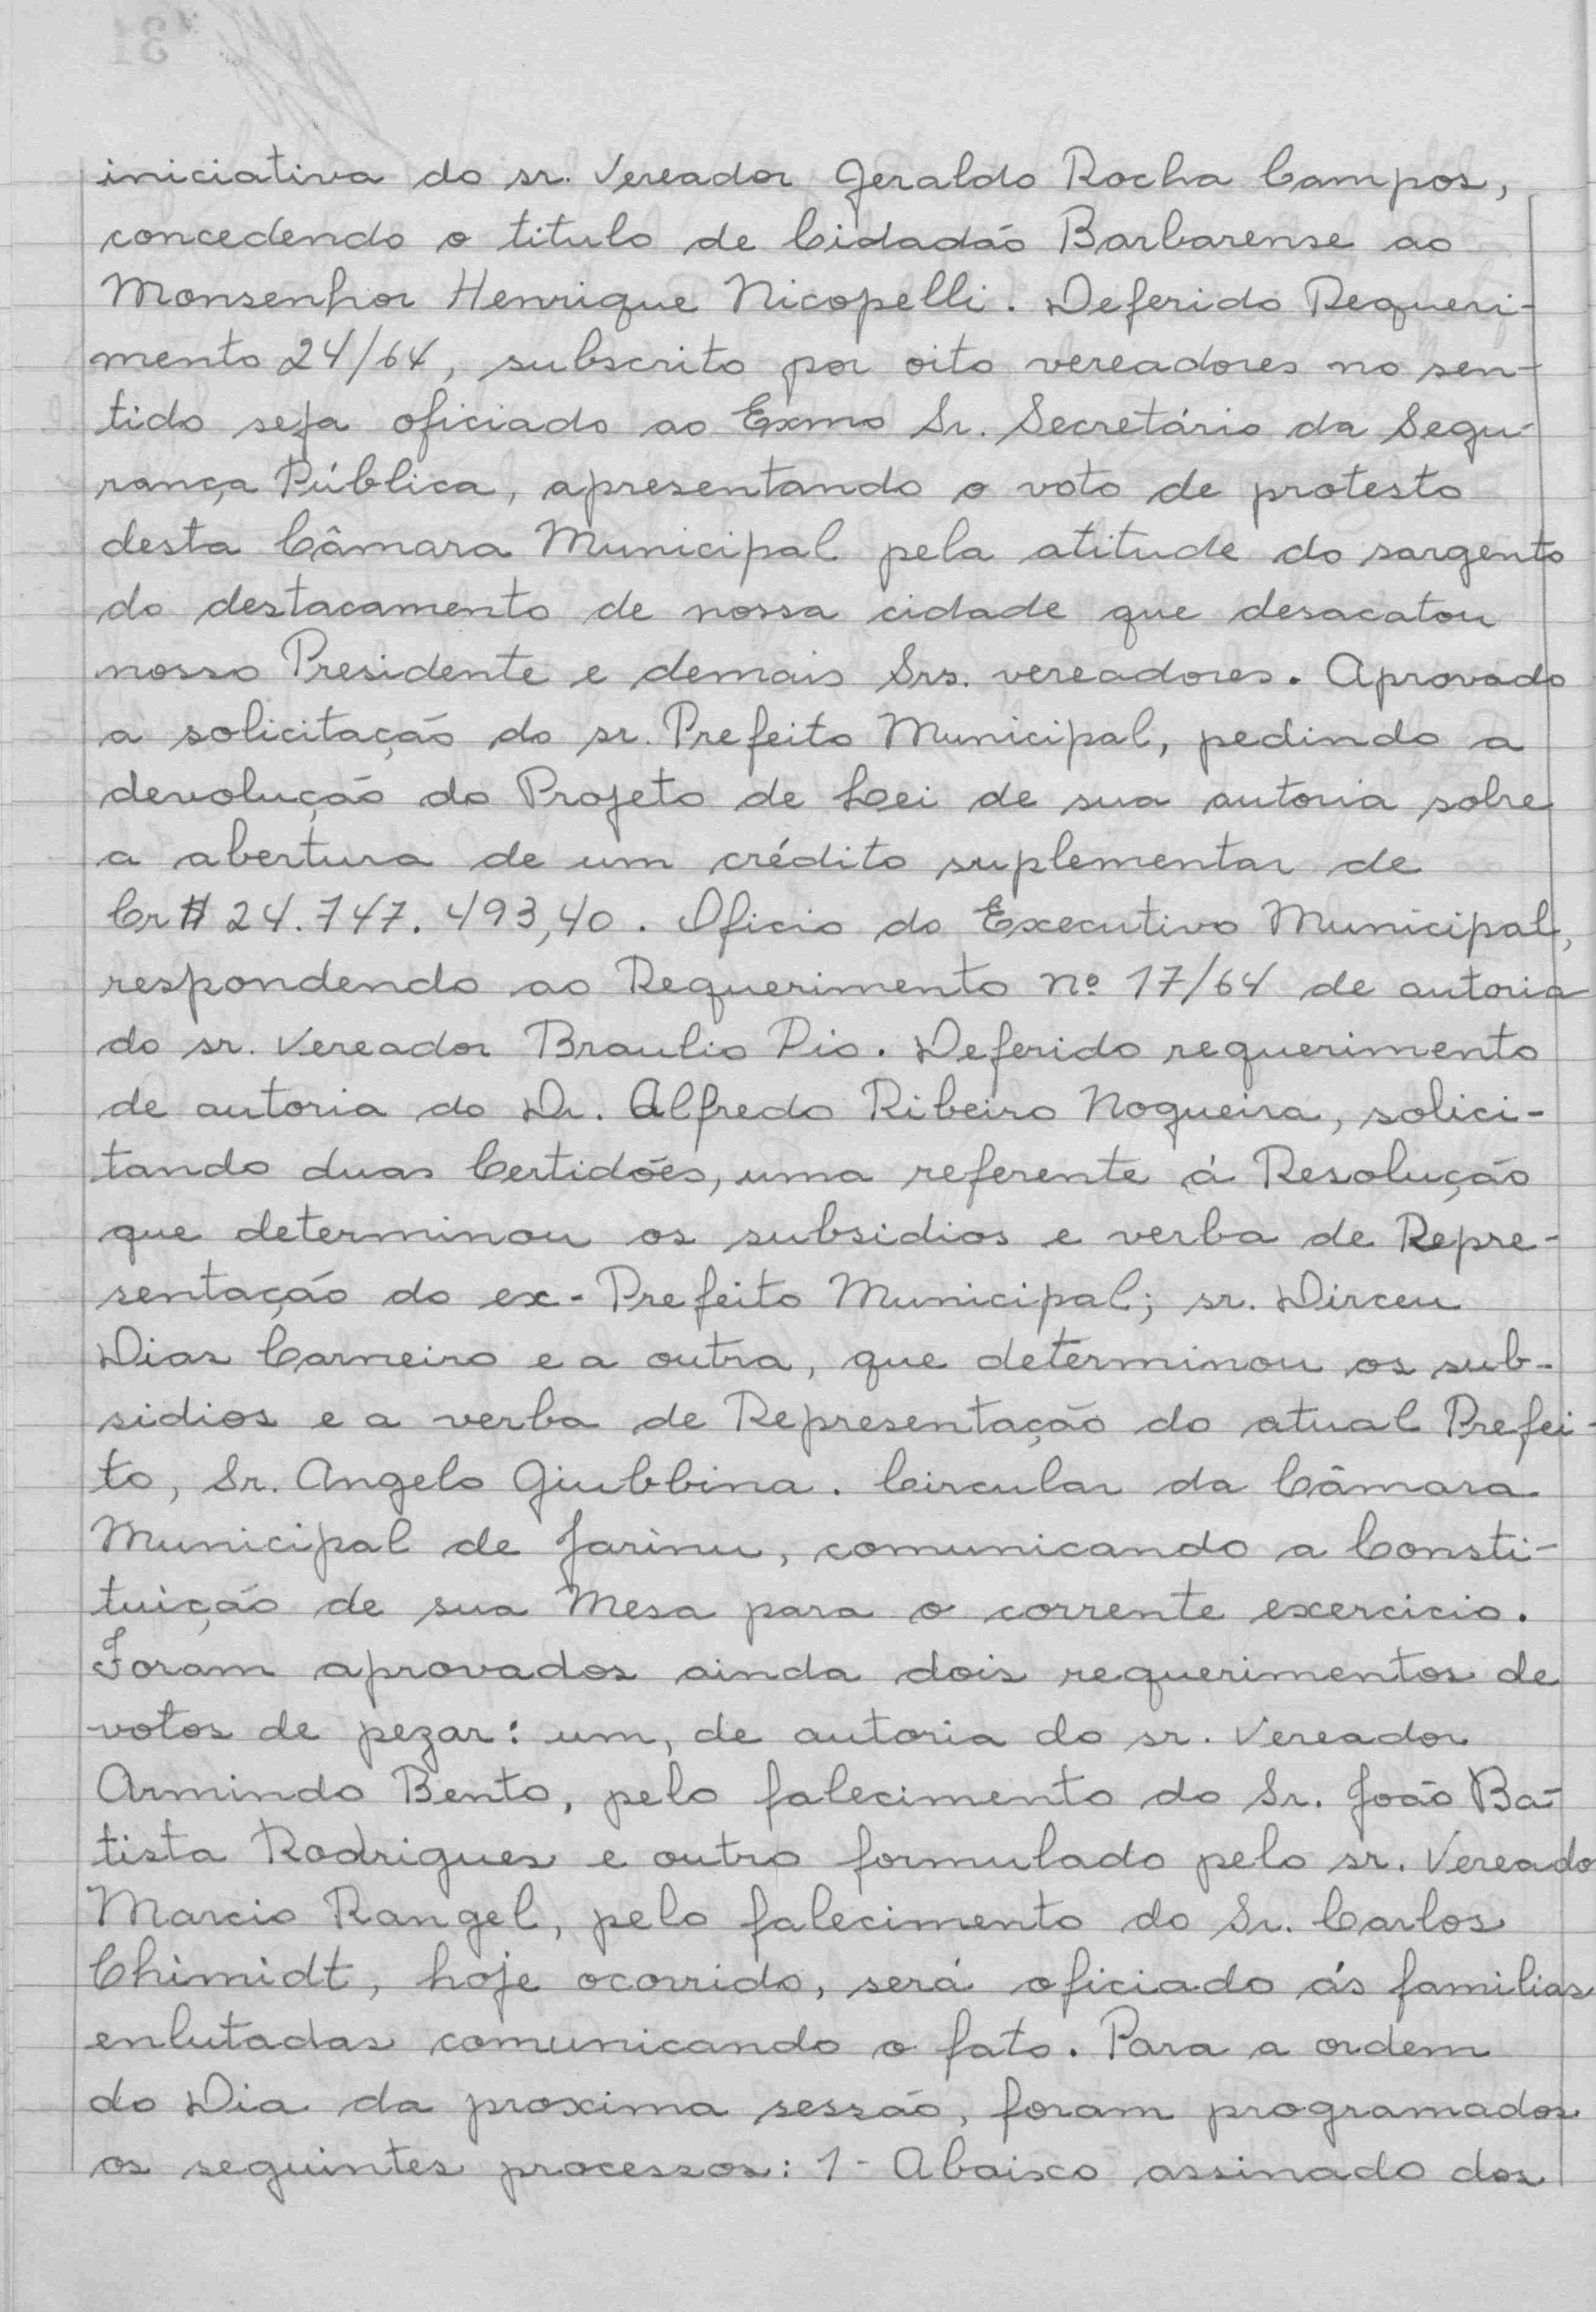 iniciativa do sr. Vereador Geraldo Rocha Campos,
concedendo o titulo de Cidadão Barbarense ao
Monsenhor Henrique Nicopelli. Deferido Requeri-
mento 24/64, subscrito por oito vereadores no sen-
tido seja oficiado ao Exmo Sr. Secretário da Segu-
rança Pública, apresentando o voto de protesto
desta Câmara Municipal pela atitude do sargento
do destacamento de nossa cidade que desacatou
nosso Presidente e demais Srs. vereadores. Aprovado
a solicitação do sr. Prefeito Municipal, pedindo a
devolução do Projeto de Lei de sua autoria sobre
a abertura de um crédito suplementar de
Cr$ 24.747.493,40. Oficio do Executivo Municipal,
respondendo ao Requerimento nº 17/64 de autoria
do sr. Vereador Braulio Pio. Deferido requerimento
de autoria do Dr. Alfredo Ribeiro Nogueira, solici-
tando duas Certidões, uma referente á Resolução
que determinou os subsidios e verba de Repre-
sentação do ex-Prefeito Municipal; sr. Dirceu
Dias Carneiro e a outra, que determinou os sub-
sidios e a verba de Representação do atual Prefei-
to, Sr. Angelo Giubbina. Circular da Câmara
Municipal de Jarinu, comunicando a Consti-
tuição de sua Mesa para o corrente exercicio.
Foram aprovados ainda dois requerimentos de
votos de pezar: um, de autoria do sr. Vereador
Armindo Bento, pelo falecimento do Sr. João Ba-
tista Rodrigues e outro formulado pelo sr. Vereado
Marcio Rangel, pelo falecimento do Sr. Carlos
Chimidt, hoje ocorrido, será oficiado ás familias
enlutadas comunicando o fato. Para a ordem
do Dia da proxima sessão, foram programados
os seguintes processos: 1- Abaixo assinado dos